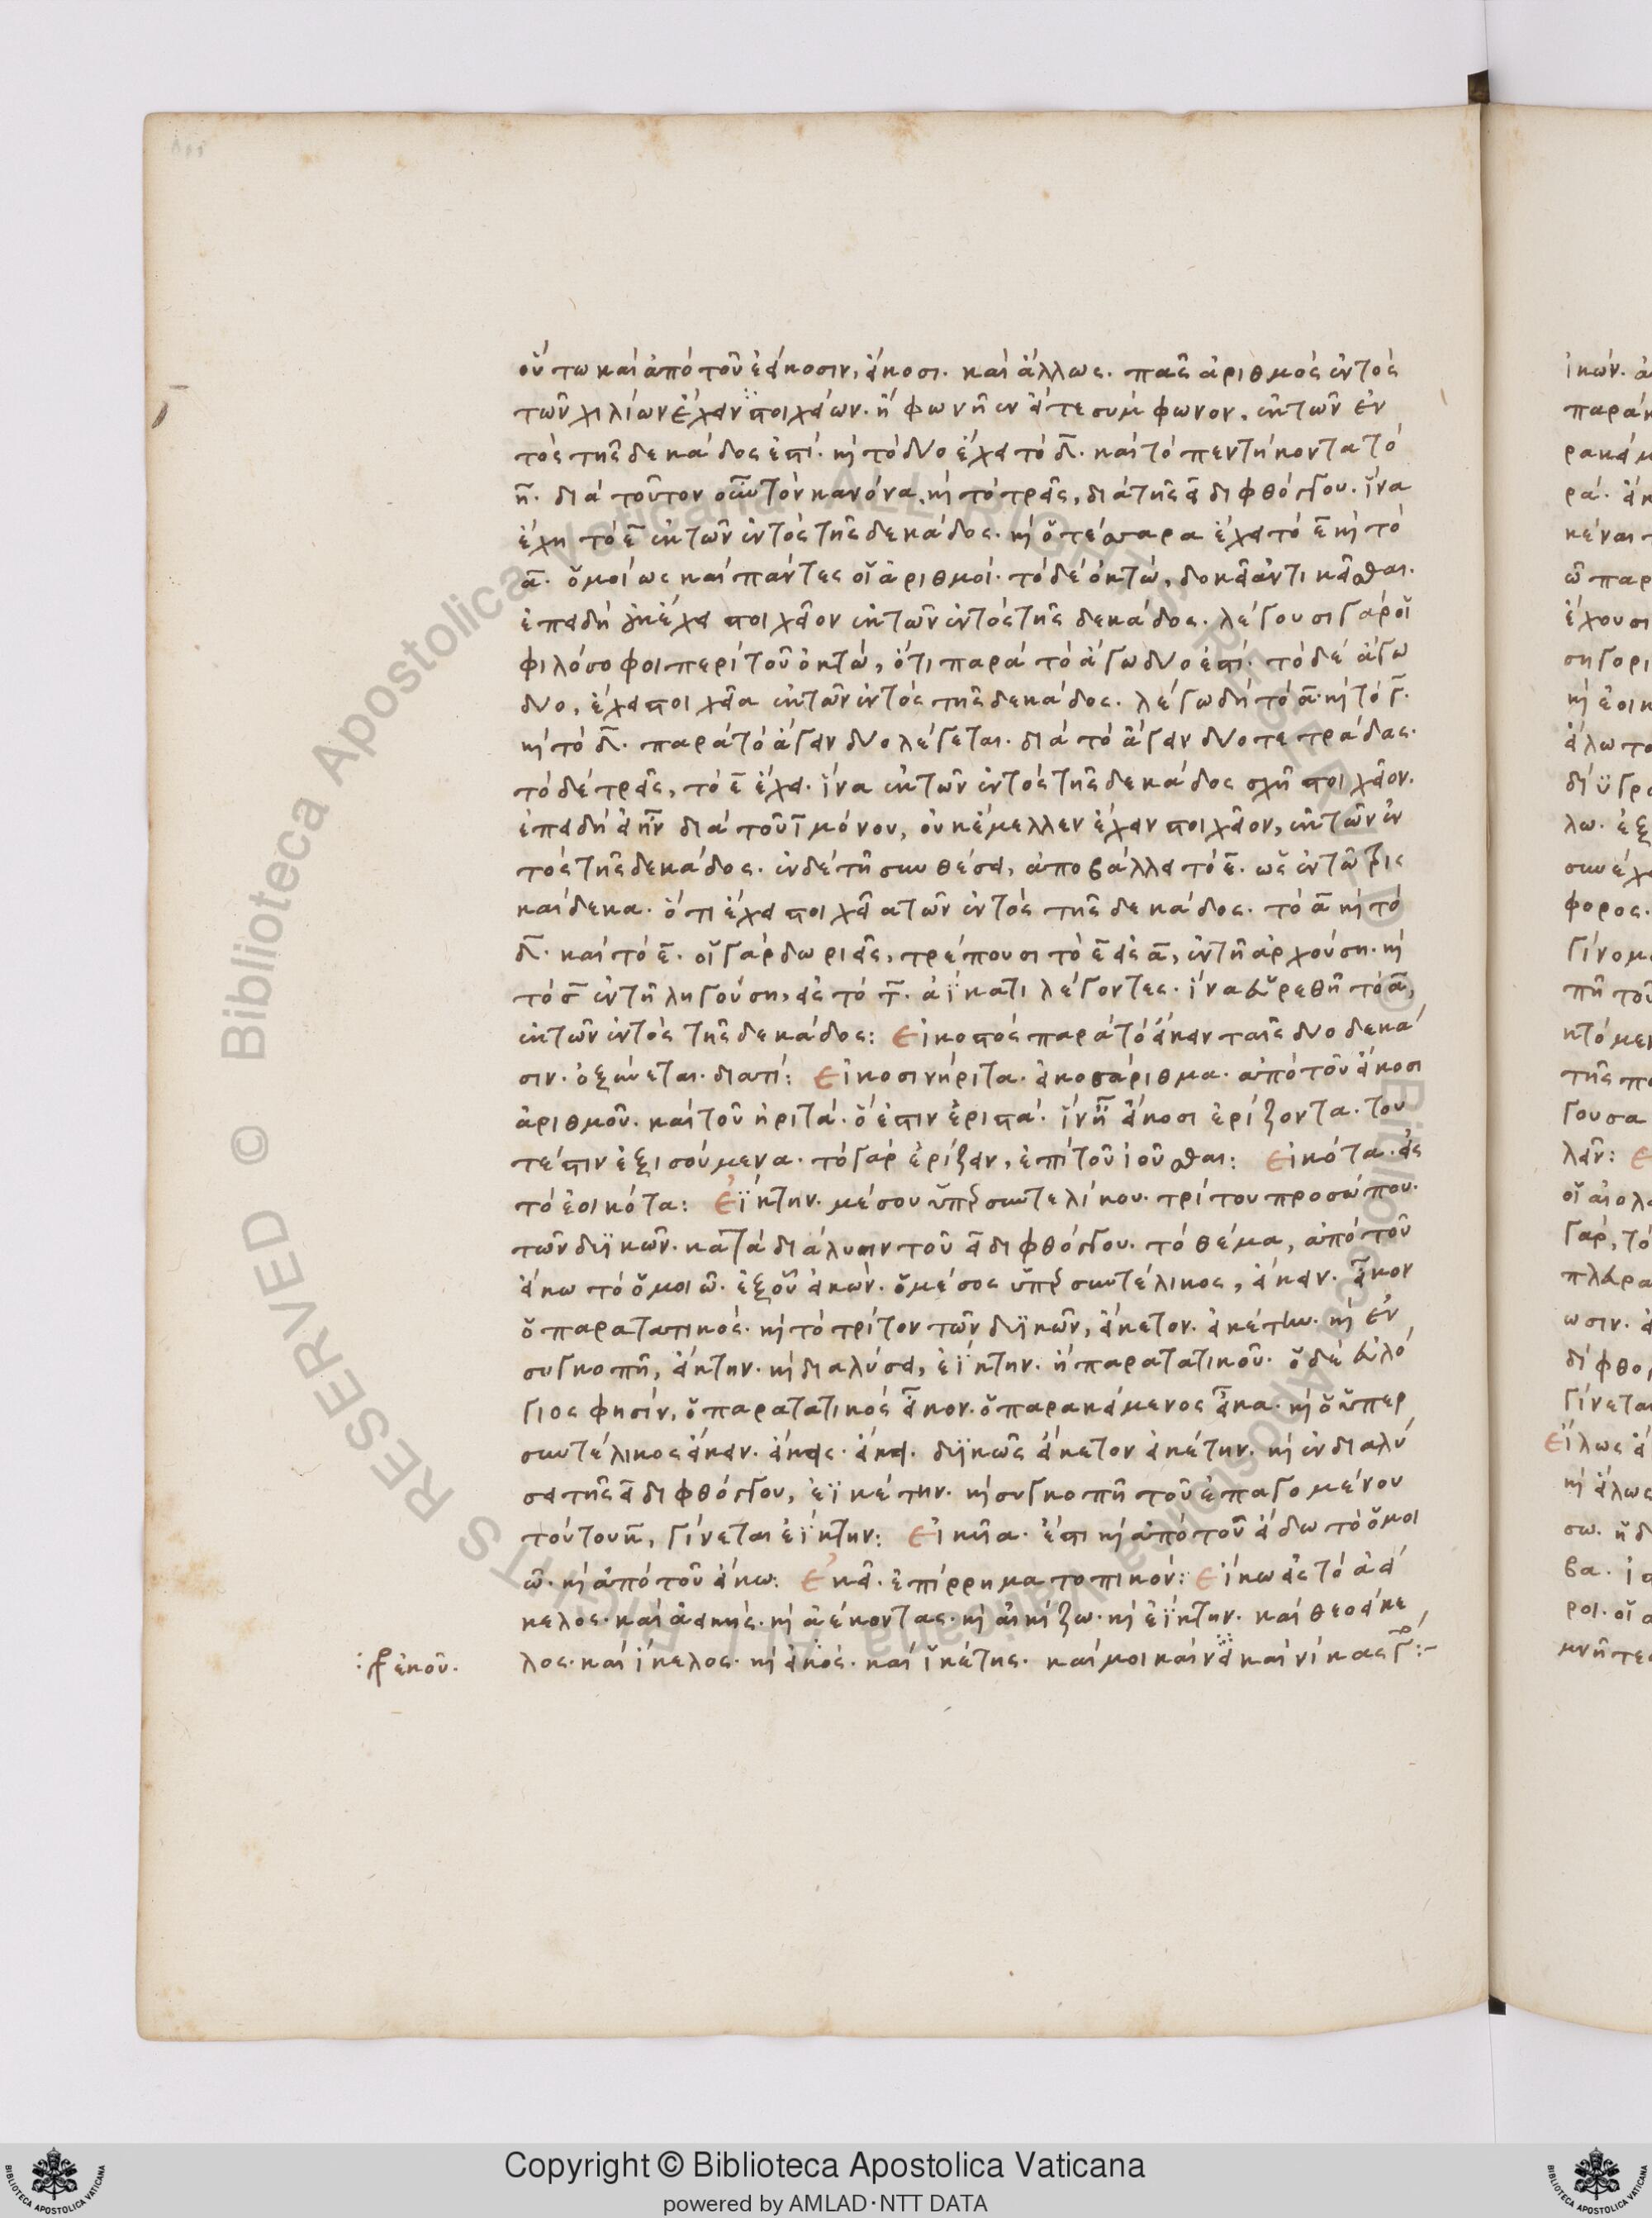 οὕτω καὶ ἀπὸ τοῦ ἐείκοσιν, είκοσι. καὶ ἄλλως. πᾶς ἀριθμὸς ἐντὸς
τῶν χιλίων ἔχειν στοιχείων. ἢ φωνῆεν εἴτε σύμφωνον, ἐκ τῶν ἐν
τὸς τῆς δεκάδος ἐστί. καὶ τὸ δύο ἔχει τὸ δ. καὶ τὸ πεντήκοντα τὸ
η. διὰ τοῦτον τὸν κανόνα, καὶ τὸ τρεῖς, διὰ τῆς ει διφθόγγου. ἵνα
ἔχη τὸ ε ἐκ τῶν ἐντὸς τῆς δεκάδος. καὶ ὁ τέσσαρα ἔχει τὸ ε καὶ τὸ
α. ὁμοίως καὶ πάντες οἱ ἀριθμοί. τὸ δὲ ὀκτώ, δοκεῖ ἀντικεῖσθαι.
ἐπειδὴ οὐκ ἔχει στοιχεῖον ἐκ τῶν ἐντὸς τῆς δεκάδος. λέγουσι γὰρ οἱ
φιλόσοφοι περὶ τοῦ ὀκτώ, ὅτι παρὰ τὸ ἄγω δύο ἐστί. τὸ δὲ ἄγω
δύο, ἔχει στοιχεῖα ἐκ τῶν ἐντὸς τῆς δεκάδος. λέγω δὴ τὸ α. καὶ τὸ γ.
καὶ τὸ δ. παρὰ τὸ ἄγειν δύο λέγεται. διὰ τὸ ἄγειν δύο τετράδας.
τὸ δὲ τρεῖς, τὸ ε ἔχει. ἵνα ἐκ τῶν ἐντὸς τῆς δεκάδος σχῆ στοιχεῖον.
ἐπειδὴ εἰ ἦν διὰ τοῦ ι μόνου, οὐκ ἔμελλεν ἔχειν στοιχεῖον, ἐκ τῶν ἐν
τὸς τῆς δεκάδος. ἐν δὲ τῆ συνθέσει, ἀποβάλλει τὸ ε. ὡς ἐν τῶ τρις
καίδεκα. ὅτι ἔχει στοιχεῖα τῶν ἐντὸς τῆς δεκάδος. τὸ α καὶ τὸ
δ. καὶ τὸ ε. οἱ γὰρ δωριεῖς, τρέπουσι τὸ ε εἰς α, ἐν τῆ ἀρχούση. καὶ
τὸ σ ἐν τῆ ληγούση, εἰς τὸ τ. ἀΐκατι λέγοντες. ἵνα εὑρεθῆ τὸ α,
ἐκ τῶν ἐντὸς τῆς δεκάδος: Εἰκοστὸς παρὰ τὸ εἴκειν ταῖς δύο δεκά
σιν. ὀξύνεται. διατί: Εἰκοσινήριτα. εἰκοσάριθμα. ἀπὸ τοῦ εἴκοσι
ἀριθμοῦ. καὶ τοῦ ἠριτά. ὅ ἐστιν ἐριστά. ἵν' ἦ εἴκοσι ἐρίζοντα. του
τέστιν ἐξισούμενα. τὸ γὰρ ἐρίζειν, ἐπὶ τοῦ ἰσοῦσθαι: Εἰκότα. εἰς
τὸ ἐοικότα: Ἐΐκτην. μέσου ὑπερσυντελίκου. τρίτου προσώπου.
τῶν δυϊκῶν. κατὰ διάλυσιν τοῦ ει διφθόγγου. τὸ θέμα, ἀπὸ τοῦ
εἴκω τὸ ὁμοιῶ. ἐξ οὗ εἰκών. ὁ μέσος ὑπερσυντέλικος, εἴκειν. εἶκον
ὁ παρατατικός. καὶ τὸ τρίτον τῶν δυϊκῶν, εἴκετον. εἰκέτην. καὶ ἐν
συγκοπῆ, εἴκτην. καὶ διαλύσει, ἐΐκτην. ἢ παρατατικοῦ. ὁ δὲ εὐλό
γιος φησίν, ὁ παρατατικὸς εἶκον. ὁ παρακείμενος εἶκα. καὶ ὁ ὑπερ
συντέλικος εἴκειν. εἴκεις. εἴκει. δυϊκῶς εἴκετον εἰκέτην. καὶ ἐν διαλύ
σει τῆς ει διφθόγγου, ἐϊκέτην. καὶ συγκοπῆ τοῦ ἐπαγομένου
τούτου ε, γίνεται ἐΐκτην: Εἰκυῖα. ἔστι καὶ ἀπὸ τοῦ εἴδω τὸ ὁμοι
ῶ. καὶ ἀπὸ τοῦ εἴκω: Ἐκεῖ. ἐπίρρημα τοπικόν: Εἴκω εἰς τὸ ἀεί
κελος. καὶ ἀεικής. καὶ ἀέκοντας. καὶ αἰκίζω. καὶ ἐΐκτην. καὶ θεοείκε
λος. καὶ ἴκελος. καὶ εἰκός. καὶ ἱκέτης. καὶ μοι καὶ νεῖ καὶ νίκας γρ:-
ἐκοῦ.